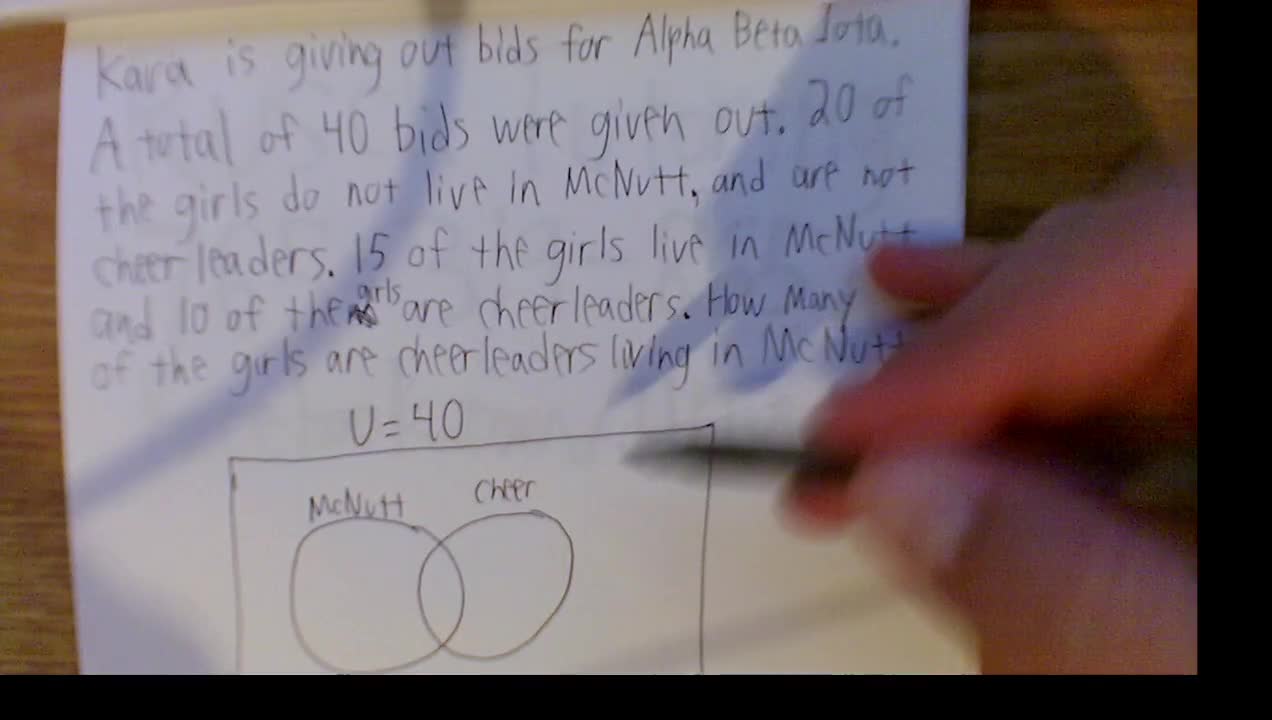 Kara is giving out bids for Alpha Beta Iota.
A total of 40 bids were given out. 20 of
the girls do not live in McNutt, and are not
cheerleaders. 15 of the girls live in McNutt
and 10 of the girls are cheerleaders. How many
of the girls are cheerleaders living in McNutt
U=40
McNutt
Cheer